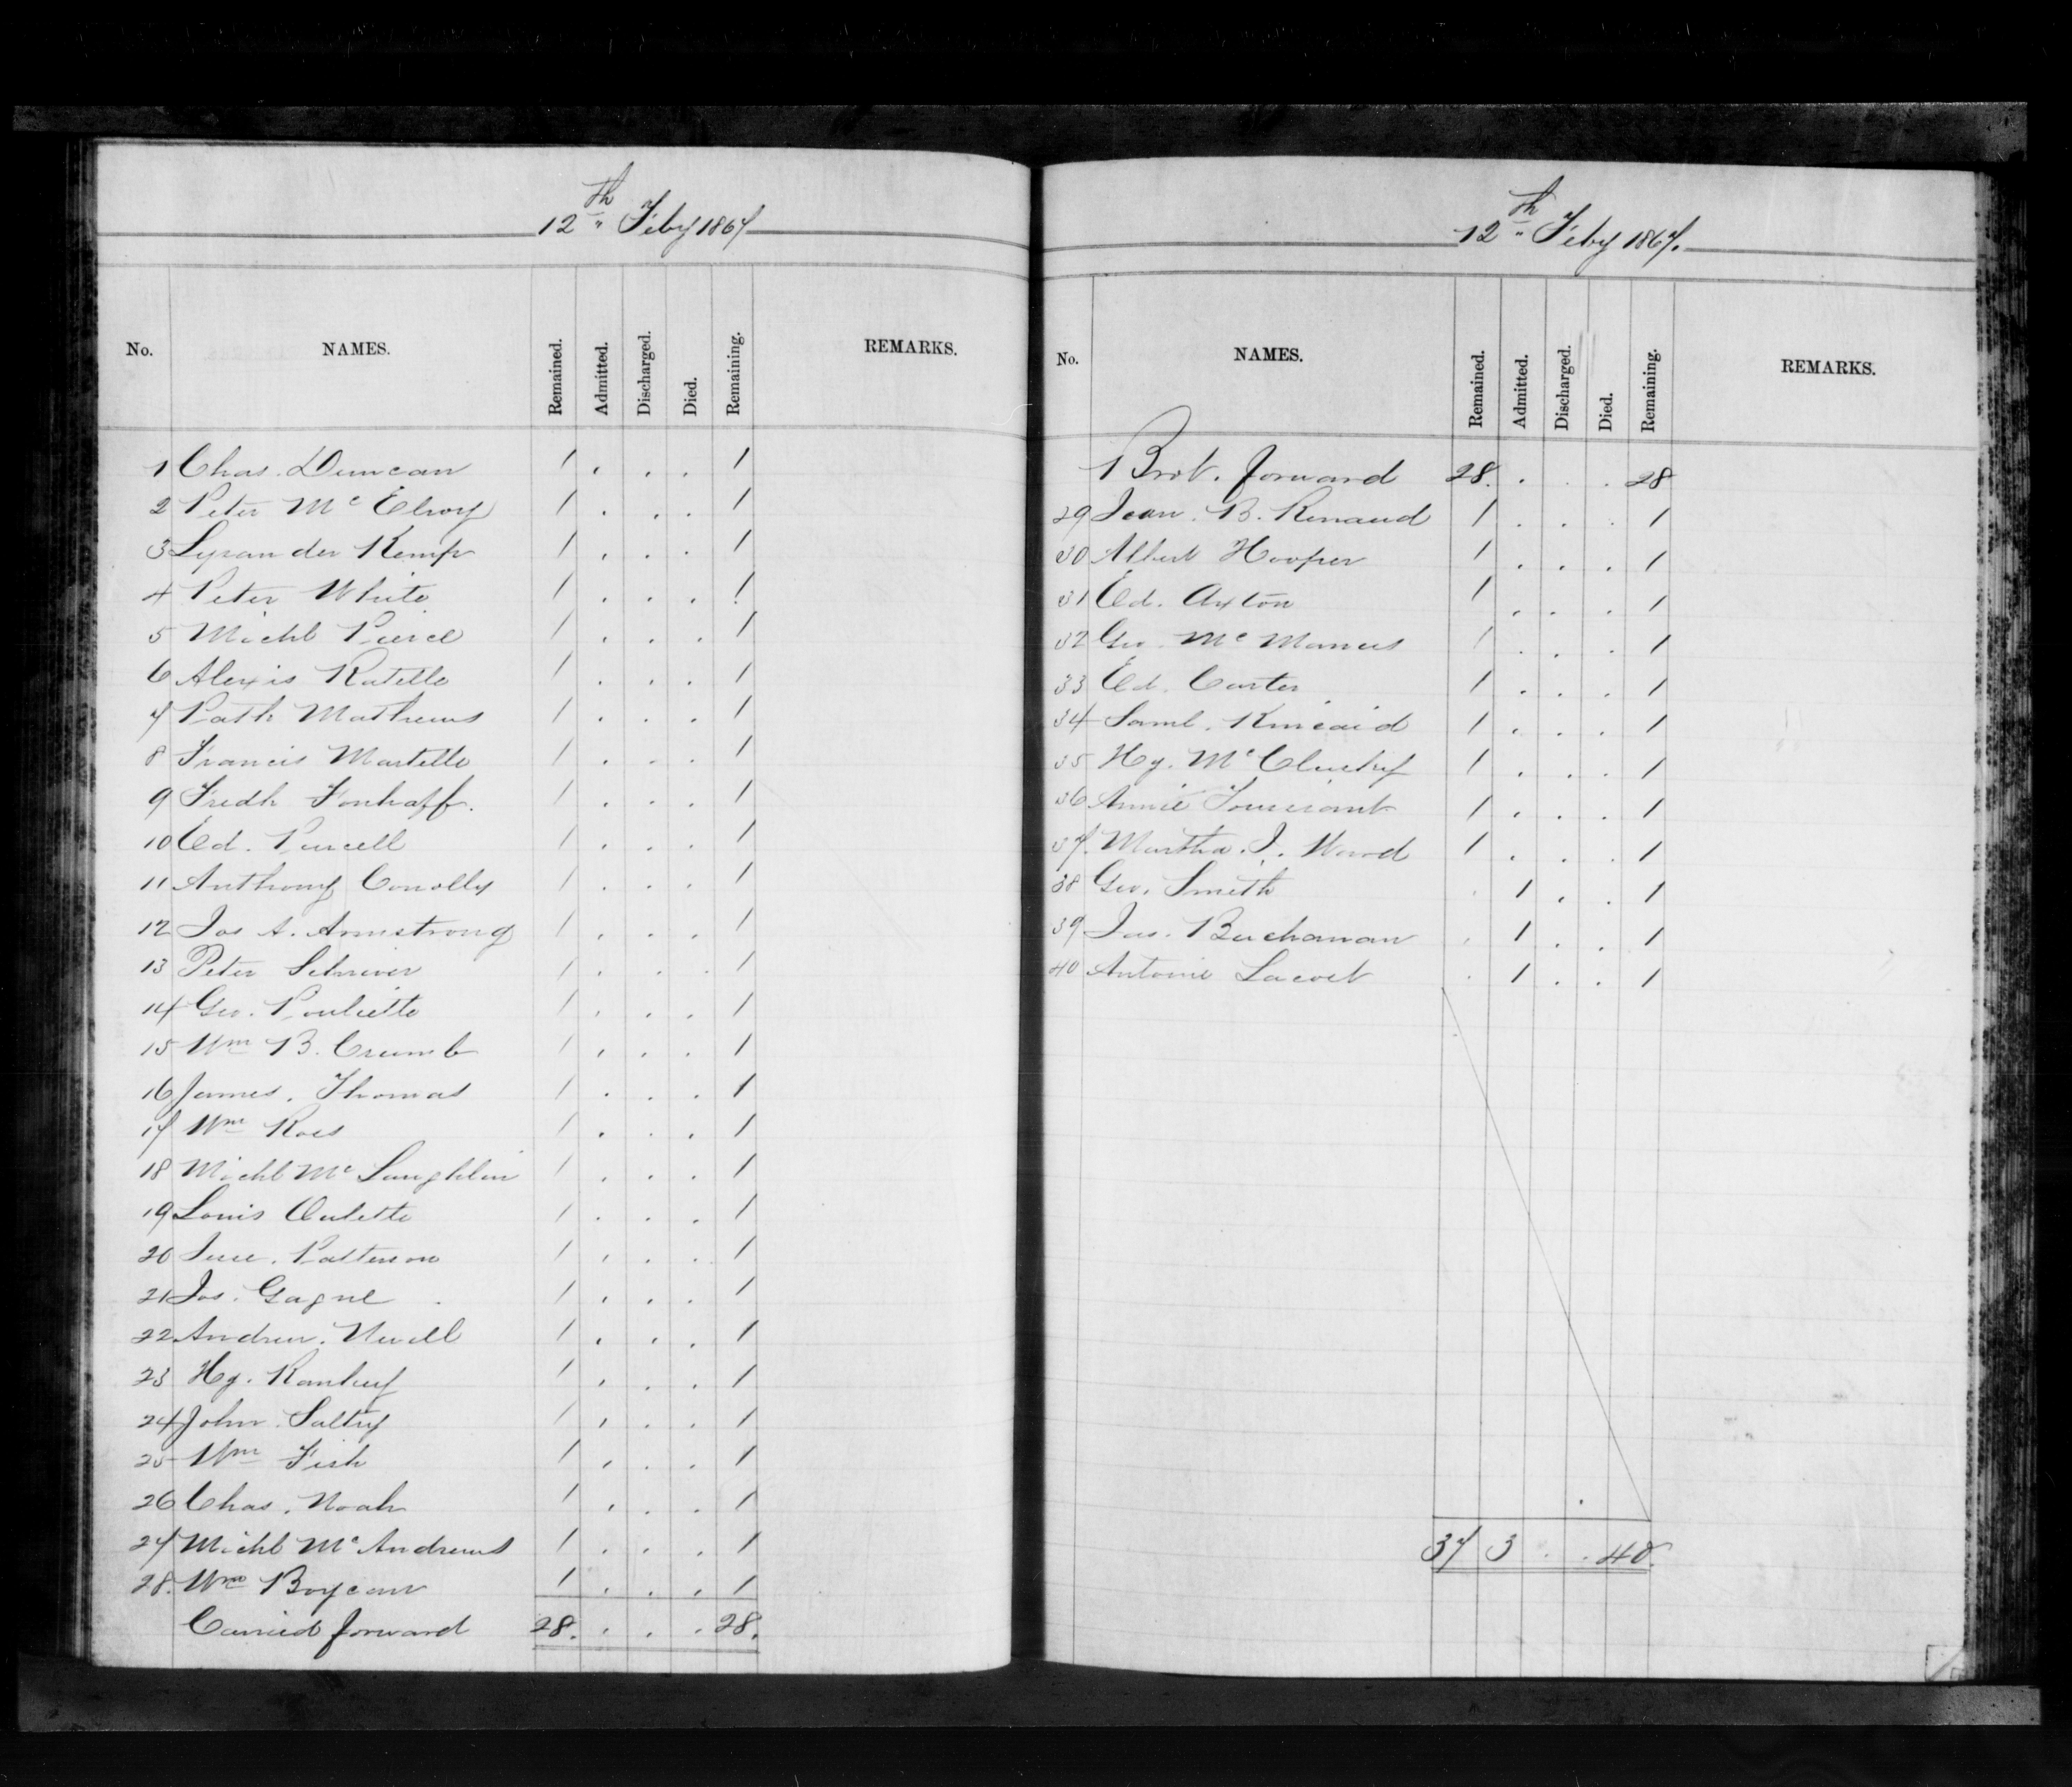 12th Feby 1867
No. NAMES. Remained. Admitted. Discharged. Died. Remaining. REMARKS.
1 Chas. Duncan 1 . . . 1
2 Peter Mc Elroy 1 . . . 1
3 Lysander Kemp 1 . . . 1
4 Peter White 1 . . . 1
5 Michl Pierce 1 . . . 1
6 Alexis Ratelle 1 . . . 1
7 Patk Mathews 1 . . . 1
8 Francis Martelle 1 . . . 1
9 Fredk Fonhaff. 1 . . . 1
10 Ed. Purcell 1 . . . 1
11 Anthony Conolly 1 . . . 1
12 Jos A. Armstrong 1 . . . 1
13 Peter Schriver 1 . . . 1
14 Geo. Pouliette 1 . . . 1
15 Wm B. Crumb 1 . . . 1
16 James. Thomas 1 . . . 1
17 Wm Ross 1 . . . 1
18 Michl Mc Laughlin 1 . . . 1
19 Louis Oulette 1 . . . 1
20 Patterson 1 . . . 1
21 Jos. Gagne 1 . . . 1
22 Andrew. Nevell 1 . . . 1
23 Hy. 1 . . . 1
24 John Saltry 1 . . . 1
25 Wm Fish 1 . . . 1
26 Chas. Noah 1 . . . 1
27 Michl Mc Andrews 1 . . . 1
28. Wm Boycan 1 . . . 1
Carried forward 28. . . . 28.
12th Feby 1867.
No. NAMES. Remained. Admitted. Discharged. Died. Remaining. REMARKS.
Brot. forward 28. . . . 28
29 Jean. B. Renaud 1 . . . 1
30 Albert Hooper 1 . . . 1
31 Ed. Axton 1 . . . 1
32 Geo. Mc Manus 1 . . . 1
33 Ed. Carter 1 . . . 1
34 Saml. Kincaid 1 . . . 1
35 Hy. Mc Cluskey 1 . . . 1
36 Annie Toussiant 1 . . . 1
37. Martha. J. Ward 1 . . . 1
38 Geo. Smith . 1 . . 1
39 Jas. Buchanan . 1 . . 1
40 Antoine Lacost . 1 . . 1
37 3 . . 40.